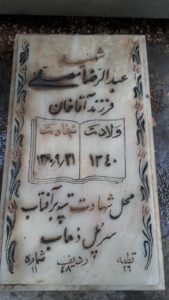 شهید
عبدالرضا معینی
فرزند آقاخان
ولادت شهادت
۱۳۴۰ ۱۳۶۰/۹/۲۱
محل شهادت تپه پرآفتاب
سرپل ذهاب
قطعه ردیف شماره
۲۶ ۴۸ ۱۱